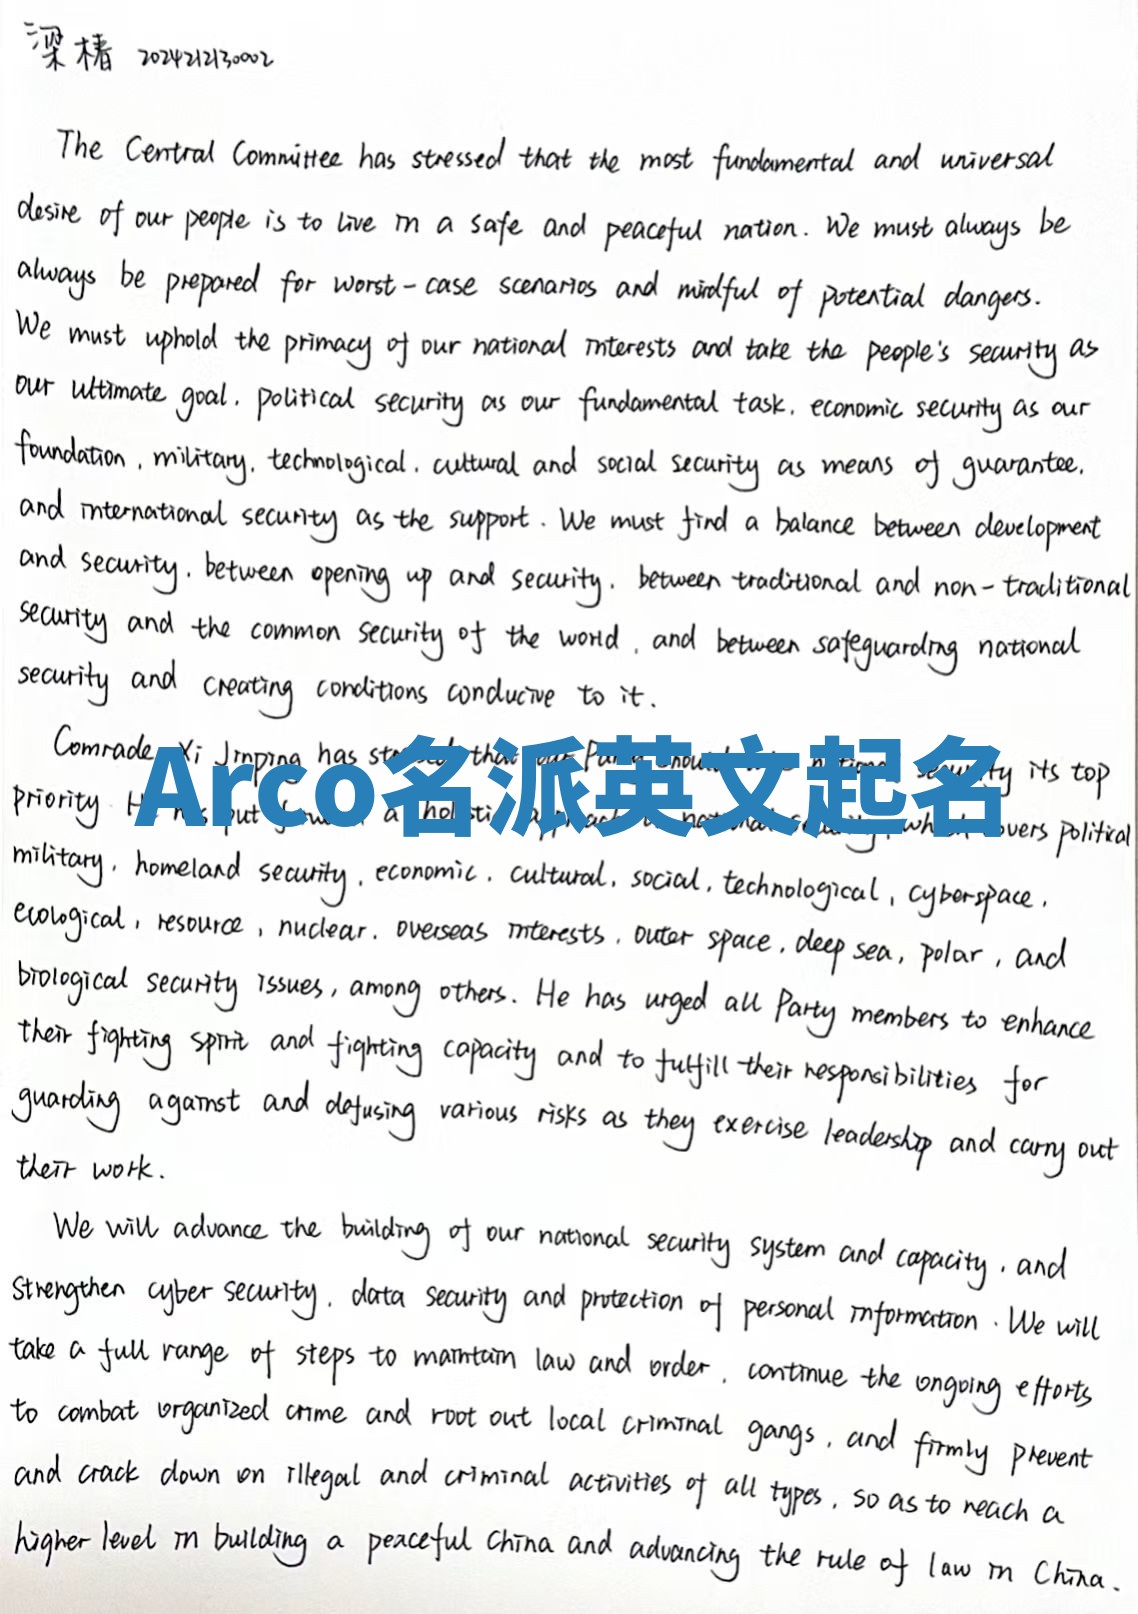 梁椿 2024212130002
The Central Committee has stressed that the most fundamental and universal
desire of our people is to live in a safe and peaceful nation. We must always be
always be prepared for worst-case scenarios and mindful of potential dangers.
We must uphold the primacy of our national interests and take the people's security as
our ultimate goal, political security as our fundamental task, economic security as our
foundation, military, technological, cultural and social security as means of guarantee,
and international security as the support. We must find a balance between development
and security, between opening up and security, between traditional and non-traditional
security and the common security of the world, and between safeguarding national
security and creating conditions conducive to it.
Comrade Xi Jinping has that its top
Arco名派英文起名
priority put a covers political
military, homeland security, economic, cultural, social, technological, cyberspace,
ecological, resource, nuclear, overseas interests, outer space, deep sea, polar, and
biological security issues, among others. He has urged all Party members to enhance
their fighting spirit and fighting capacity and to fulfill their responsibilities for
guarding against and defusing various risks as they exercise leadership and carry out
their work.
We will advance the building of our national security system and capacity, and
strengthen cyber security, data security and protection of personal information. We will
take a full range of steps to maintain law and order, continue the ongoing efforts
to combat organized crime and root out local criminal gangs, and firmly prevent
and crack down on illegal and criminal activities of all types, so as to reach a
higher level in building a peaceful China and advancing the rule of law in China.